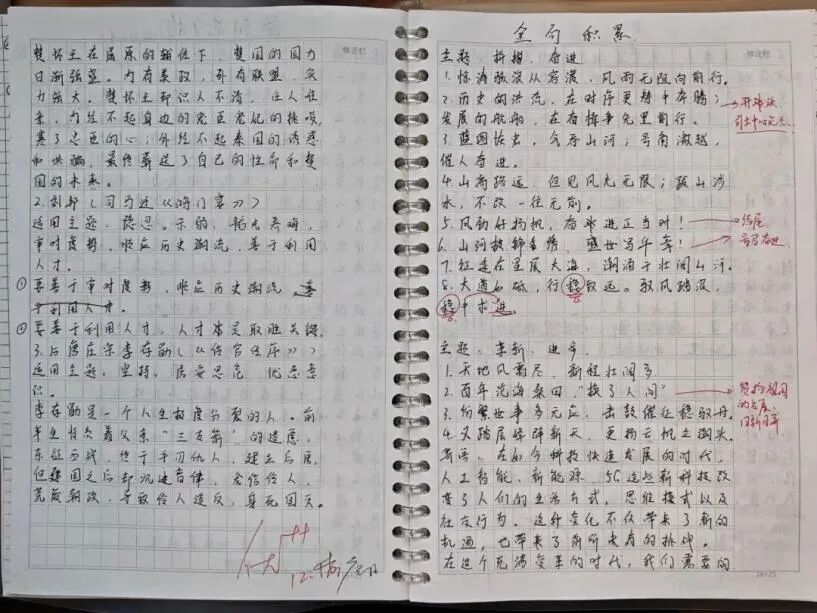 楚怀王在屈原的辅佐下，楚国的国力
日渐强盛。内有美政，外有联盟，实
力强大。楚怀王却识人不清，任人唯
亲，内经不起身边的宠臣宠妃的挑唆，
寒了忠臣的心；外经不起秦国的诱惑
和哄骗，最终葬送了自己的性命和楚
国的未来。
2.刘邦（司马迁《鸿门宴》）
适用主题：隐忍。示弱，韬光养晦，
审时度势，顺应历史潮流，善于利用
人才。
①要善于审时度势，顺应历史潮流。
②要善于利用人才，人才本是取胜关键
3.后唐庄宗李存勖（《伶官传序》）
适用主题：坚持，居安思危，忧患意
识。
李存勖是一个人生极度分裂的人。前
半生背负着父亲“三支箭”的遗愿，
东征西战，终于手刃仇人，建立后唐，
但建国之后却沉迷音律，宠信伶人，
荒废朝政，导致伶人造反，身死国灭。
优++
修正栏
金句积累
主题：拼搏，奋进
1.惊涛骇浪从容渡，风雨无阻向前行。
2.历史的洪流，在时序更替中奔腾；
发展的航船，在奋楫争先里前行。
3.蓝图恢宏，气吞山河；号角激越，
催人奋进。
4.山高路远，但见风光无限；跋山涉
水，不改一往无前。
5.风劲好扬帆，奋进正当时！
6.山河披锦绣，盛世写华章！
7.征途在星辰大海，潮涌于壮阔山河。
8.大道如砥，行稳致远。驭风踏浪，
稳中求进。
主题：革新，进步
1.天地风霜尽，新程壮阔多
2.百年沧海桑田，“换了人间”
3.纷繁世事多元应，击鼓催征稳驭舟。
4.又踏层峰辟新天，更扬云帆立潮头。
在如今科技快速发展的时代，
人工智能、新能源、5G这些新科技改
变了人们的生活方式，思维模式以及
社交行为。这种变化不仅带来了新的
机遇，也带来了前所未有的挑战。
在这个充满变革的时代，我们需要的
修正栏
开头
引出中心论点
结尾
号召奋进
赞扬祖国
的发展，